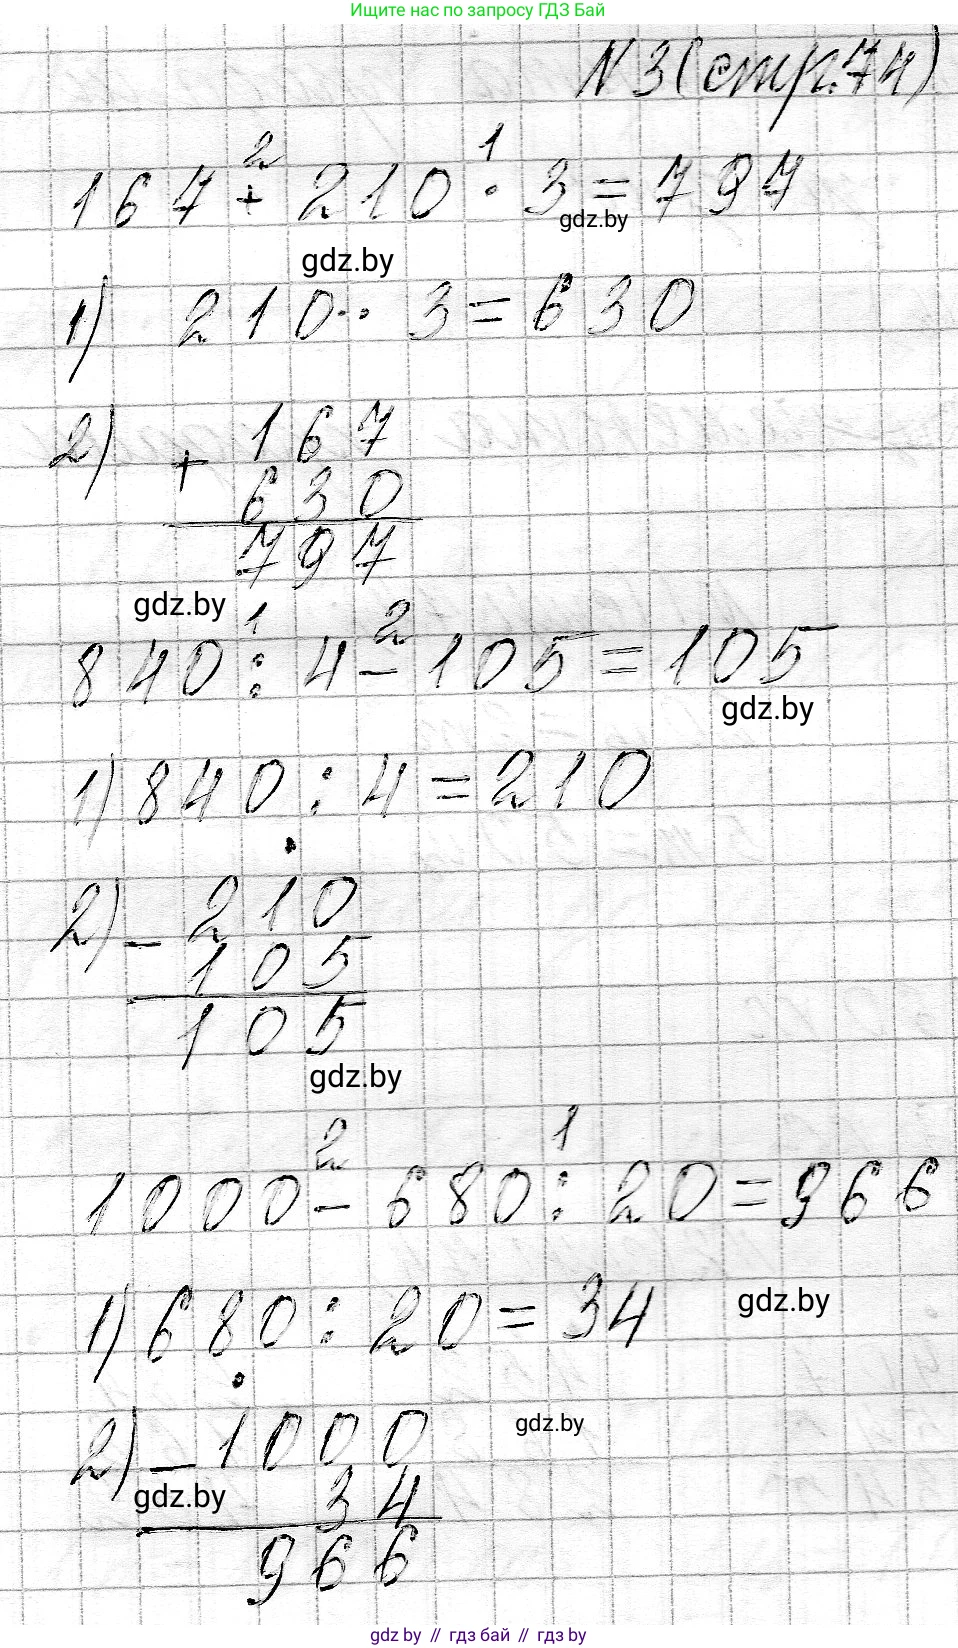 Ищите нас по запросу ГДЗ Бай
N 3 (стр. 74)
2 1
167 + 210 · 3 = 797
gdz.by
gdz.by
1) 210 · 3 = 630
2) + 167
630
797
gdz.by
1 2
840 : 4 - 105 = 105
gdz.by
1) 840 : 4 = 210
2) - 210
105
105
gdz.by
2 1
1000 - 680 : 20 = 966
1) 680 : 20 = 34
gdz.by
2) - 1000
gdz.by
34
gdz.by
966
gdz.by // гдз бай // гдз by